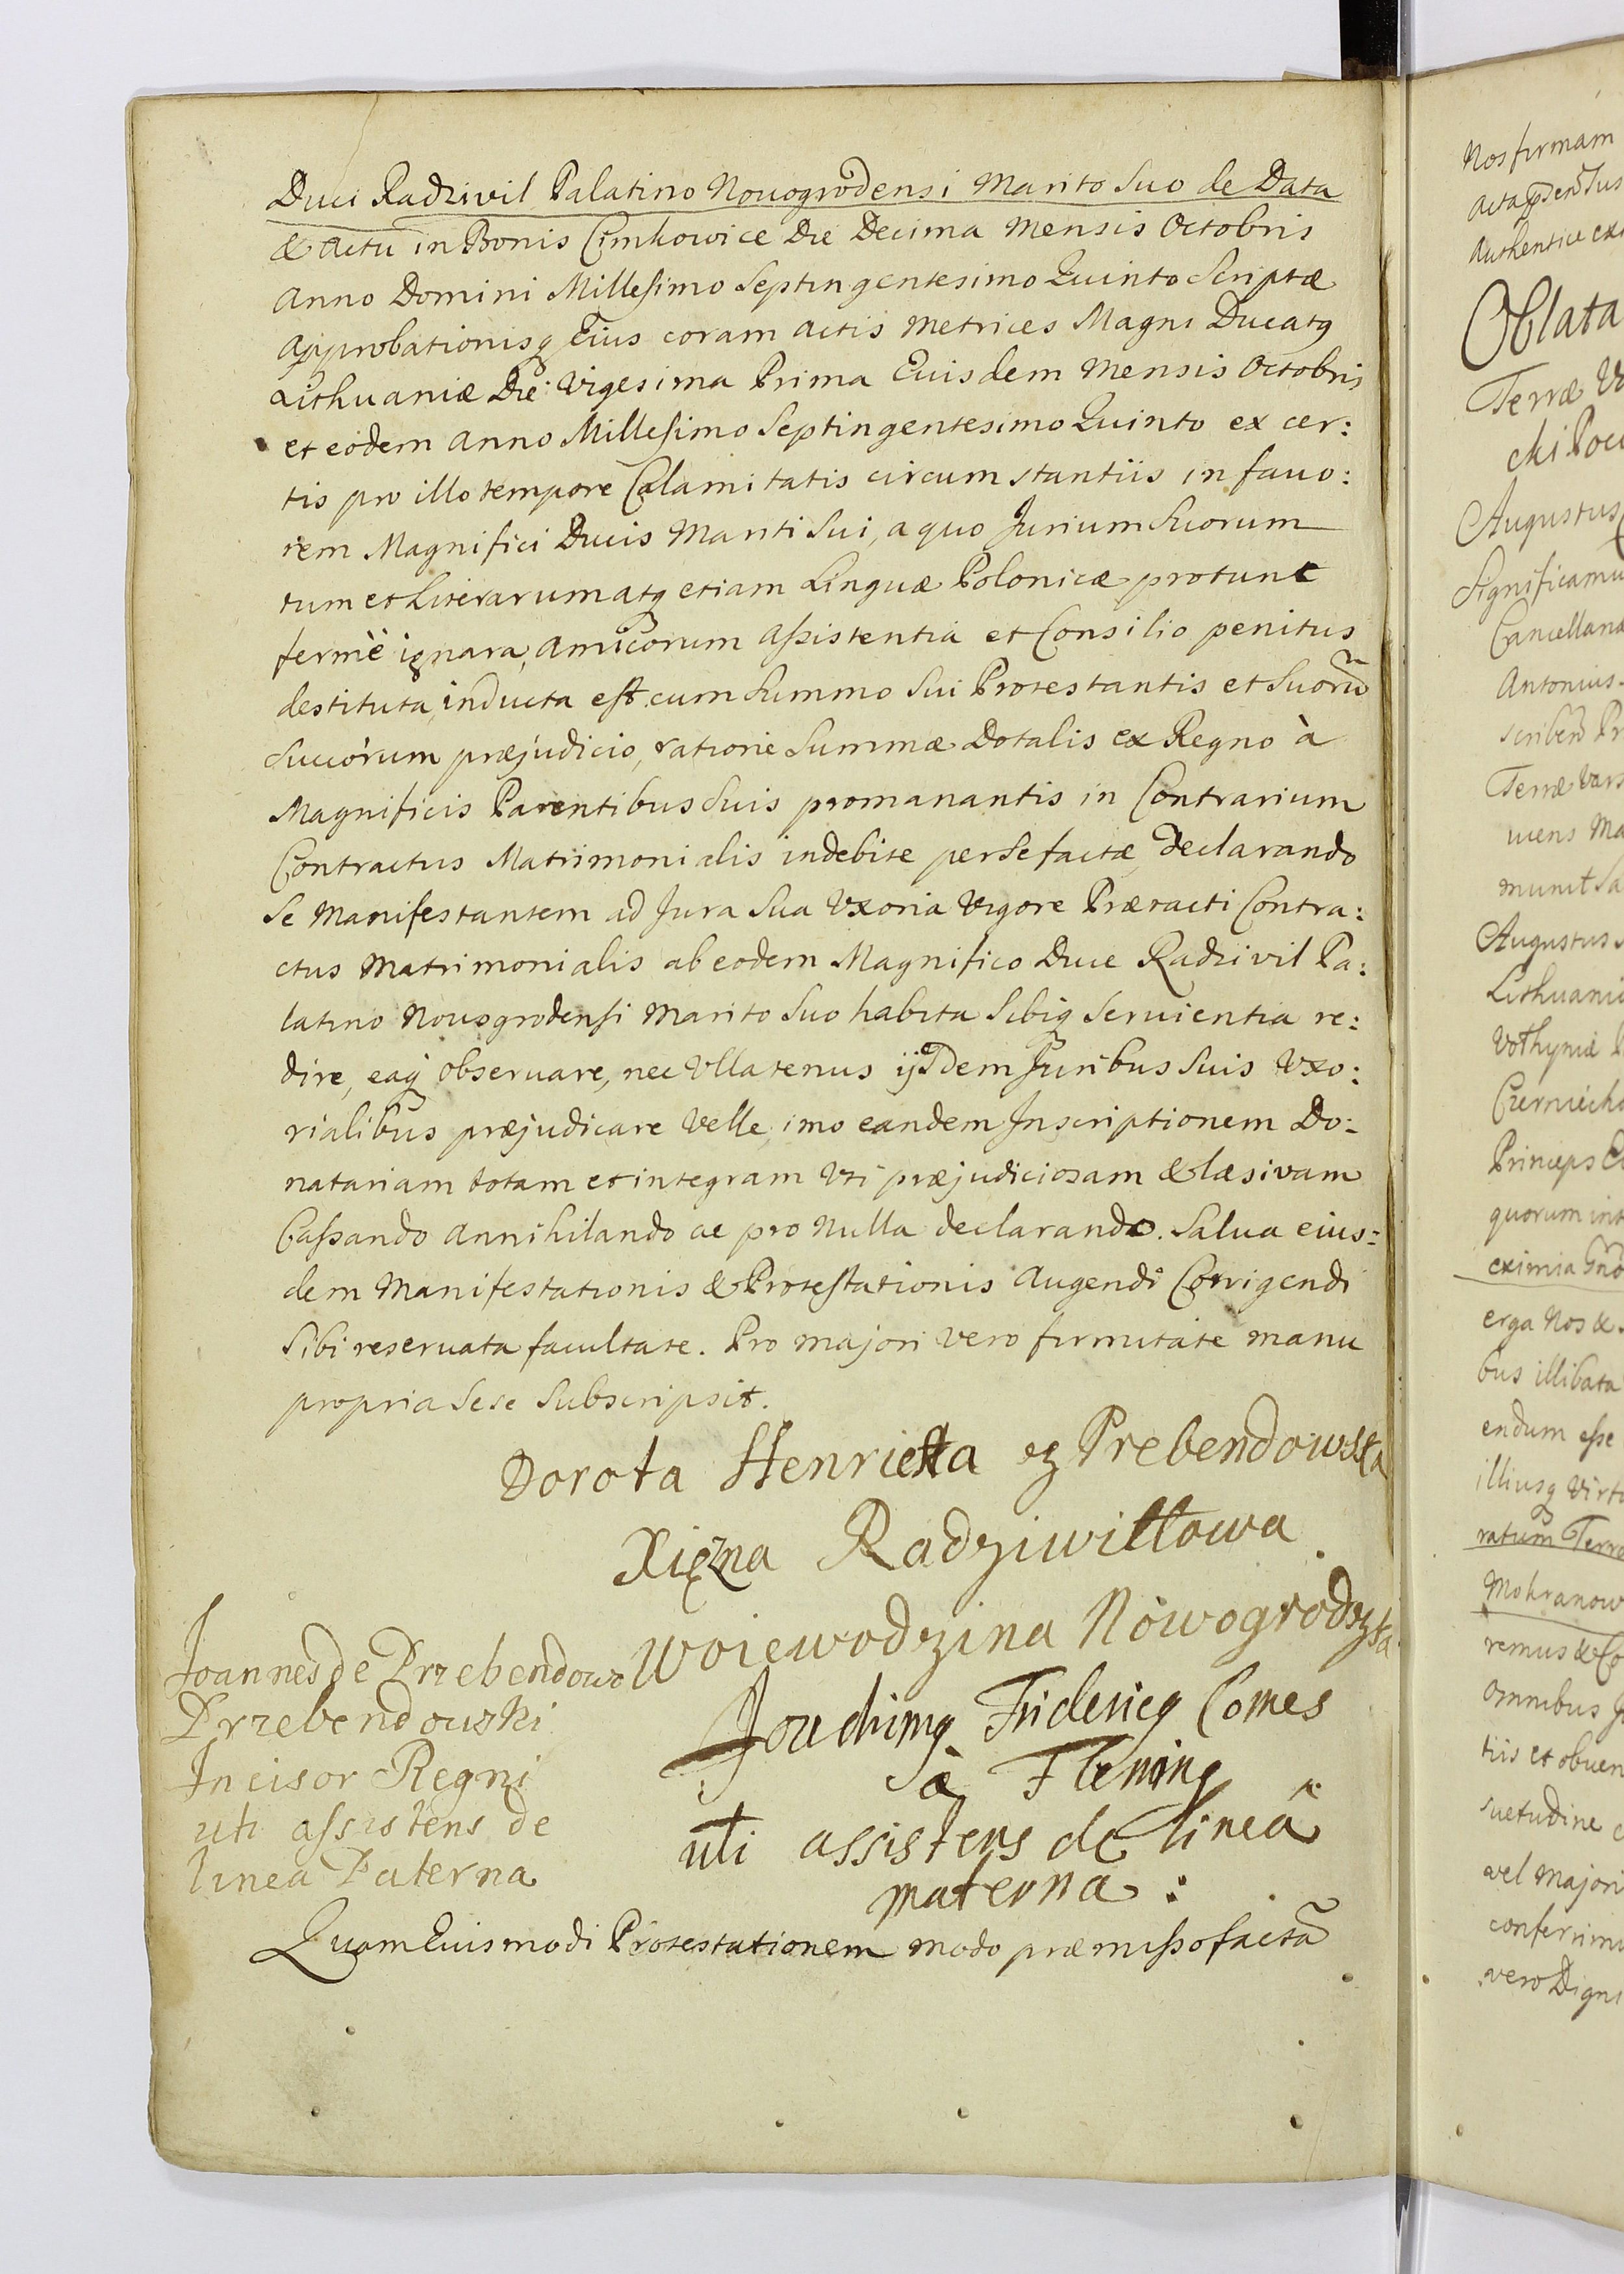 Duci Radzivil Palatino Novogrodensi Marito Suo de Data
& Actu in Bonis Cimkowice Die Decima Mensis Octobris
Anno Domini Millesimo Septingentesimo Quinto Scriptæ
Approbationisq Eius coram Actis Metrices Magni Ducatq
Lithuaniæ Die Vigesima Prima Euisdem Mensis Octobris
et eodem Anno Millesimo Septingentesimo Quinto ex cer:
tis pro illo tempore Calamitatis circumstantiis in favo:
rem Magnifici Ducis Mariti Sui, a quo Jurium Suorum
tum et Literarum atq etiam Linguæ Polonicæ pro tunc
fermè ignara, Amicorum Assistentia et Consilio penitus
destituta, inducta est. cum Summo Sui Protestantis et Suorū
Succorum præjudicio, ratione Summæ Dotalis ex Regno à
Magnificis Parentibus Suis promanantis in Contrarium
Contractus Matrimonialis indebite per Se factæ, Declarando
Se Manifestantem ad Jura Sua Uxoria Vigore Præracti Contra:
ctus Matrimonialis ab eodem Magnifico Duce Radzivil Pa:
latino Novogrodensi Marito Suo habita Sibiq Servientia re:
dire, eaq observare, nec Ullatenus ijsdem Juribus Suis Uxo:
rialibus præjudicare Velle, imo eandem Inscriptionem Do:
natariam totam et integram Uti præjudiciosam & læsivam
Cassando Annihilando ac pro Nulla declarando. Salva eius:
dem Manifestationis & Protestationis Augendi Corrigendi
Sibi reservata facultate. Pro majori vero firmitate manu
propria Sese Subscripsit.
Dorota Henrietta ez Prebendowska
Xiężna Radziwiłłowa
Woiewodzina Nowogrodzka
Joannes de Przebendowo
Przebendowski
Incisor Regni
uti assistens de
linea Paterna
Joachimq Fridericq Comes
à Fleming
uti assistens de linea
materna:
Quam Euismodi Protestationem modo præmisso factā
Nos firmam
Authentice
Oblata
Terræ
Augustus
Significamu
Cancellaria
Antonius
Terræ Vars
Augustus
Lithuania
Princeps
quorum int
eximia
erga Nos &
bus illibata
endum esse
illiusq Virtu
ratum Terræ
Mokranow
remus & Co
Omnibus
tiis et obven
suetudine
vel Majori
conferimu
vero Digni